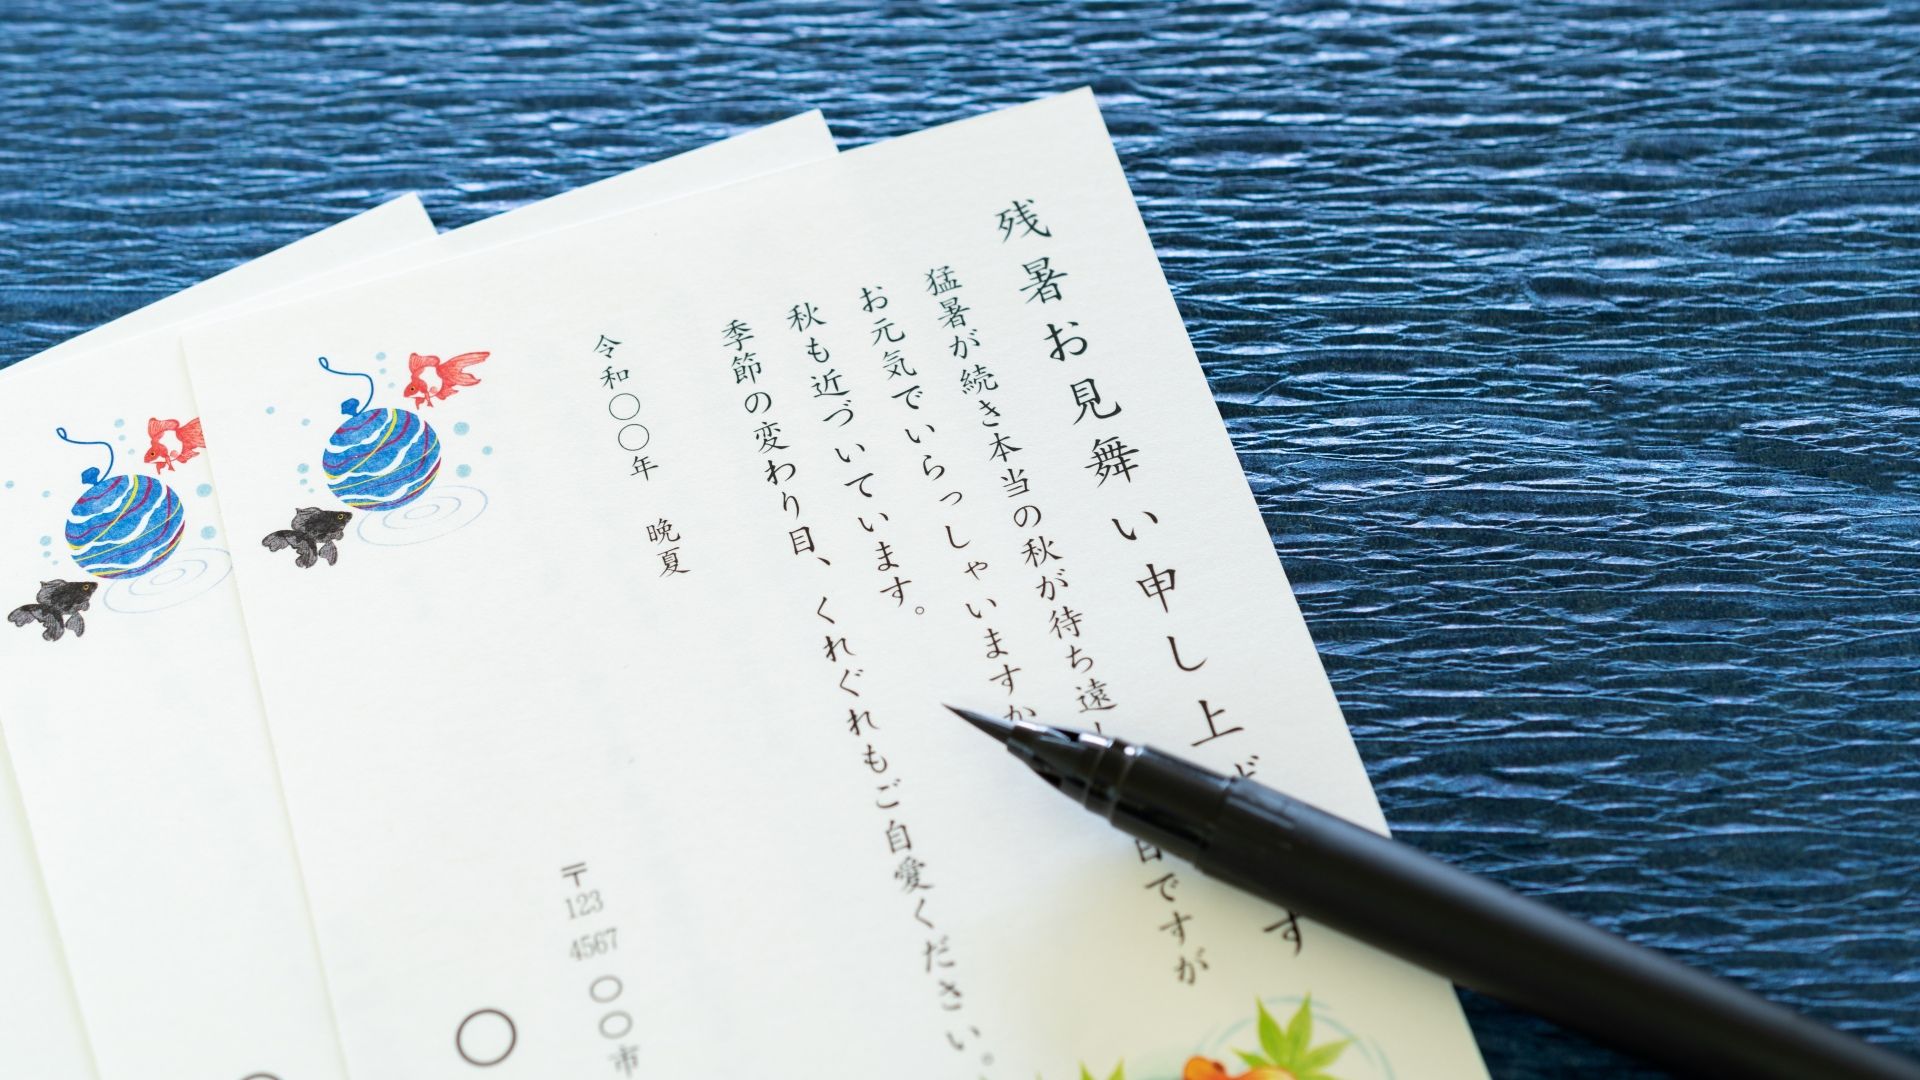 残暑お見舞い申し上
す
猛暑が続き本当の秋が待ち遠
日ですが
お元気でいらっしゃいますか
秋も近づいています。
季節の変わり目、くれぐれもご自愛ください。
令和〇〇年 晩夏
〒123 4567 〇〇市
〇